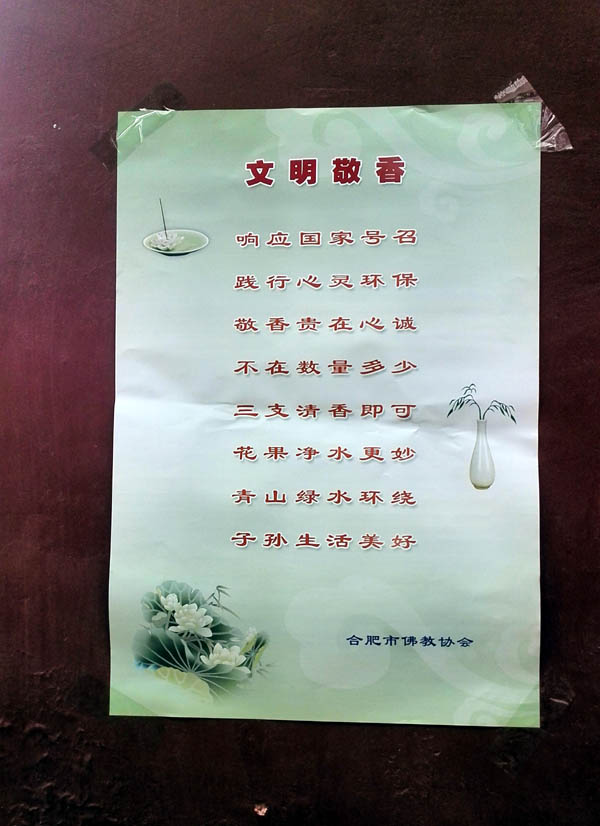 文明敬香
响应国家号召
践行心灵环保
敬香贵在心诚
不在数量多少
三支清香即可
花果净水更妙
青山绿水环绕
子孙生活美好
合肥市佛教协会